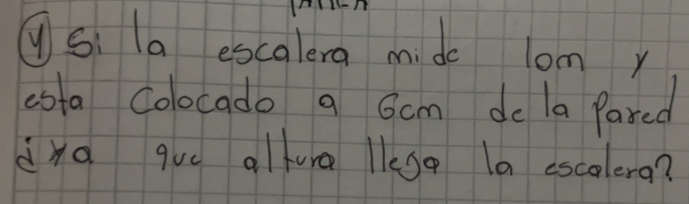 4 Si la escalera mide 10m y
esta Colocado a 6cm de la Pared
a que altura llega la escalera?